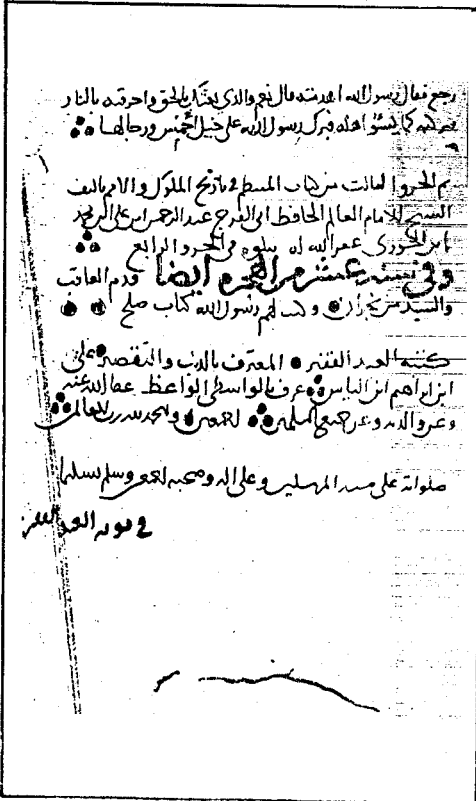 رجع فقال رسول الله اهدمته قال نعم والذي بعثك بالحق واحرقته بالنار
فتركته كما يسوء اهله فبرك رسول الله على خيل احمس ورجالها
تم الجزو الثالث من كتاب المنتظم في تاريخ الملوك والامم تاليف
الشيخ الامام العالم الحافظ ابي الفرج عبد الرحمن ابن علي ابن محمد
ابن الجوزي غفر الله له يتلوه في الجزو الرابع
وفي سنة عشر من الهجرة ايضا قدم العاقب
والسيد من نجران وكتب لهم رسول الله كتاب صلح
كتبه العبد الفقير المعترف بالذنب والتقصير علي
ابن ابراهيم ابن الياس عرف بالواسطي الواعظ عفا الله عنه
وعن والديه وعن جميع المسلمين اجمعين والحمد لله رب العالمين
صلواته على سيد المرسلين وعلى اله وصحبه اجمعين وسلم تسليما
في نوبة العبد الفقير